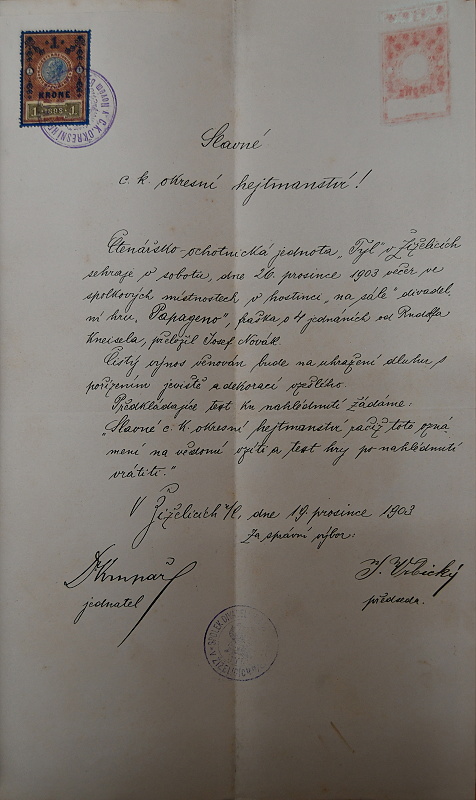 1
KRONE
1 1
C.K. OKRESNÍ
Slavné
c. k. okresní hejtmanství!
Čtenářsko-ochotnická jednota „Tyl" v Žiželicích
sehraje v sobotu, dne 26. prosince 1903 večer ve
spolkových místnostech v hostinci „na sále" divadel
ní hru „Papageno", fraška o 4 jednáních od Rudolfa
Kneisela, přeložil Josef Novák.
Čistý výnos věnován bude na uhražení dluhu s
pořízením jeviště a dekorací vzešlého.
Předkládajíce text ku nahlédnutí žádáme:
„Slavné c. k. okresní hejtmanství račiž toto ozná
mení na vědomí vzíti a text hry po nahlédnutí
vrátiti."
V Žiželicích n/C, dne 19. prosince 1903
za správní výbor:
J. Vrbický
jednatel
předseda.
SPOLEK